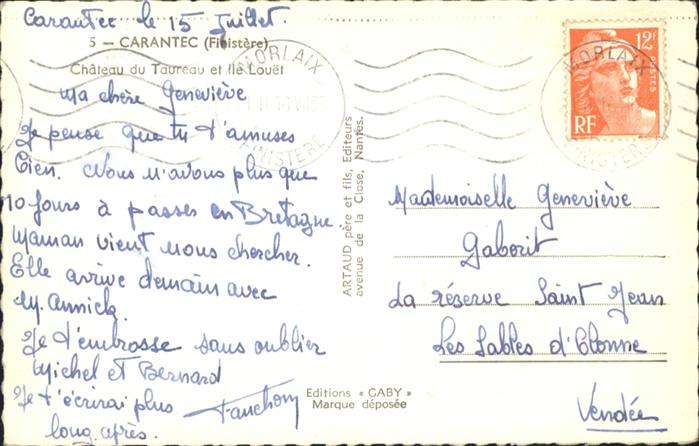 Carantec le 15 Juillet.
5 — CARANTEC (Finistère)
Château du Taureau et Ile Louët
Ma chère Geneviève
Je pense que tu t'amuses
bien. Nous n'avons plus que
10 jours à passer en Bretagne.
Maman vient nous chercher.
Elle arrive demain avec
M. Annick.
Je t'embrasse sans oublier
Michel et Bernard
Je t'écrirai plus
long après.
Fanchon
ARTAUD père et fils, Editeurs
avenue de la Close, Nantes.
Editions « GABY »
Marque déposée
MORLAIX
FINISTERE
12F
POSTES
RF
MORLAIX
FINISTERE
Mademoiselle Geneviève
Gaborit
La réserve Saint Jean
Les Sables d'Olonne
Vendée